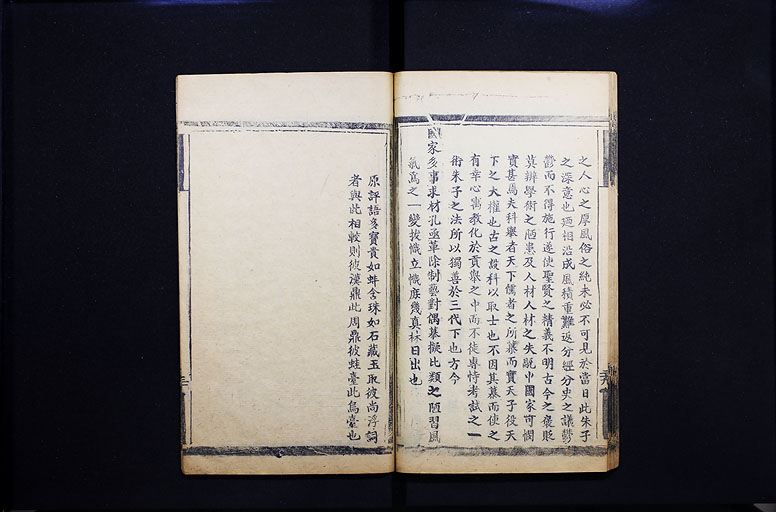 之人心之厚風俗之純未必不可見於當日此朱子
之深意也廼相沿成風積重難返分經分史之議鬱
鬱而不得施行遂使聖賢之精義不明古今之褒貶
莫辨學術之陋患及人材人材之失貽中國家可慨
實甚焉夫科舉者天下儒者之所慕而實天子役天
下之大權也古之設科以取士也不因其慕而使之
有幸心寓教化於貢舉之中而不徒專恃考試之一
術朱子之法所以獨善於三代下也方今
國家多事求材孔亟革除制藝對偶摹擬比類之陋習風
氣為之一變拔幟立幟庶幾真材日出也
原評語多寶貴如蚌含珠如石藏玉取彼尚浮詞
者與此相較則彼漢鼎此周鼎彼蛙臺此烏臺也